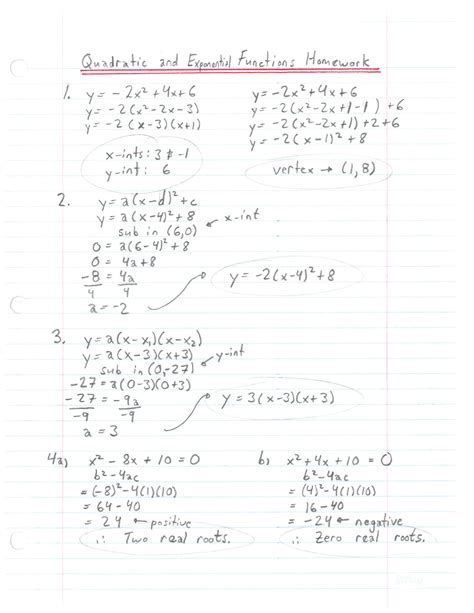 Quadratic and Exponential Functions Homework
1. y = -2x² + 4x + 6
y = -2(x² - 2x - 3)
y = -2(x - 3)(x + 1)
x-ints: 3 & -1
y-int: 6
y = -2x² + 4x + 6
y = -2(x² - 2x + 1 - 1) + 6
y = -2(x² - 2x + 1) + 2 + 6
y = -2(x - 1)² + 8
vertex → (1, 8)
2. y = a(x - d)² + c
y = a(x - 4)² + 8
sub in (6,0) ← x-int
0 = a(6 - 4)² + 8
0 = 4a + 8
-8 = 4a
4 4
a = -2
y = -2(x - 4)² + 8
3. y = a(x - x₁)(x - x₂)
y = a(x - 3)(x + 3)
sub in (0, -27) ← y-int
-27 = a(0 - 3)(0 + 3)
-27 = -9a
-9 -9
a = 3
y = 3(x - 3)(x + 3)
4a) x² - 8x + 10 = 0
b² - 4ac
= (-8)² - 4(1)(10)
= 64 - 40
= 24 ← positive
∴ Two real roots.
b) x² + 4x + 10 = 0
b² - 4ac
= (4)² - 4(1)(10)
= 16 - 40
= -24 ← negative
∴ Zero real roots.